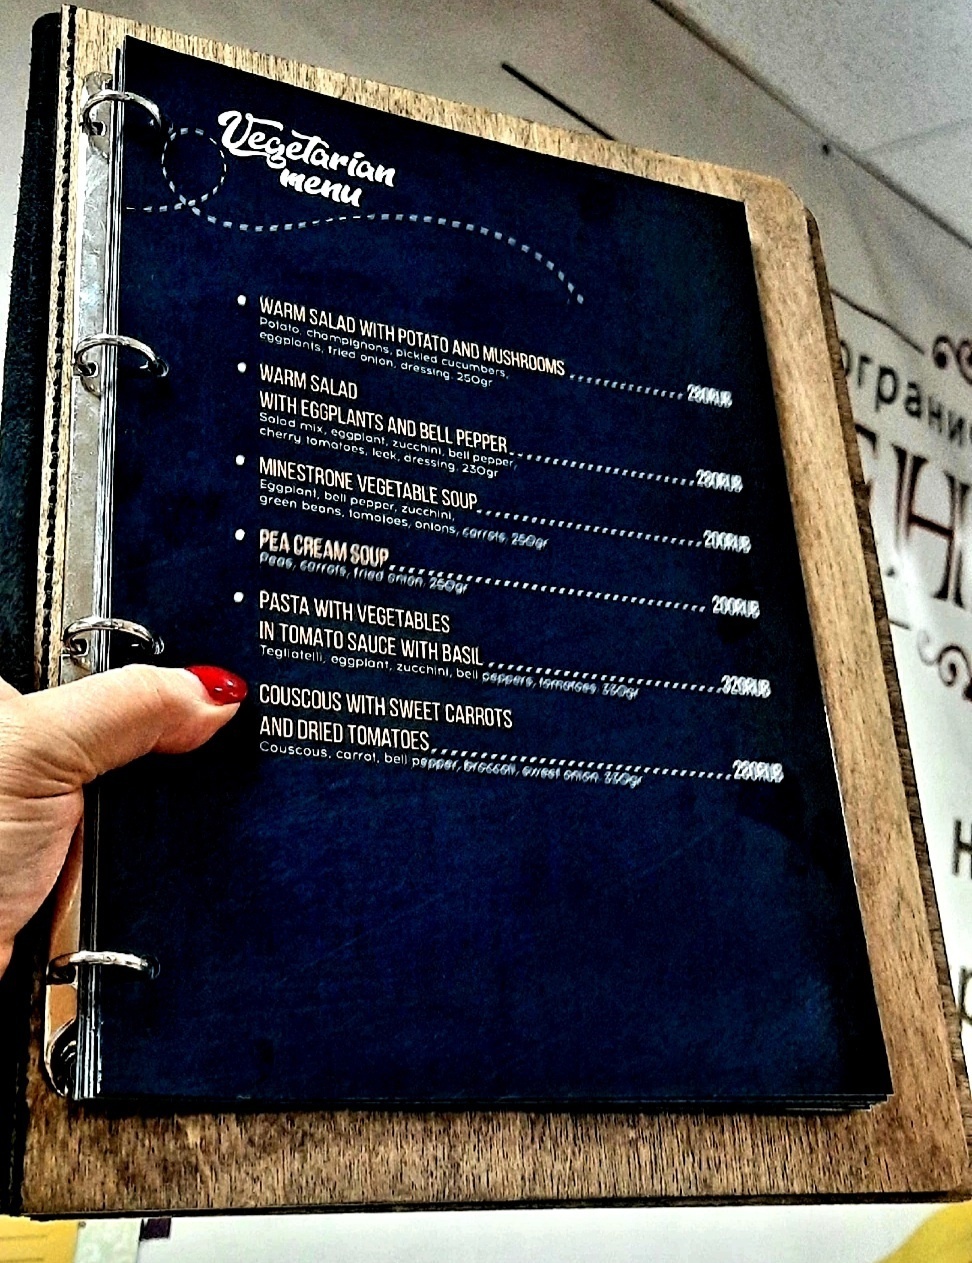 Vegetarian
menu
WARM SALAD WITH POTATO AND MUSHROOMS 280RUB
Potato, champignons, pickled cucumbers,
eggplants, fried onion, dressing. 250gr
WARM SALAD
WITH EGGPLANTS AND BELL PEPPER 280RUB
Salad mix, eggplant, zucchini, bell pepper,
cherry tomatoes, leek, dressing. 230gr
MINESTRONE VEGETABLE SOUP 200RUB
Eggplant, bell pepper, zucchini,
green beans, tomatoes, onions, carrots. 250gr
PEA CREAM SOUP 200RUB
Peas, carrots, fried onion. 250gr
PASTA WITH VEGETABLES
IN TOMATO SAUCE WITH BASIL 320RUB
Tegliatelli, eggplant, zucchini, bell peppers, tomatoes. 330gr
COUSCOUS WITH SWEET CARROTS
AND DRIED TOMATOES 280RUB
Couscous, carrot, bell pepper, broccoli, sweet onion. 330gr